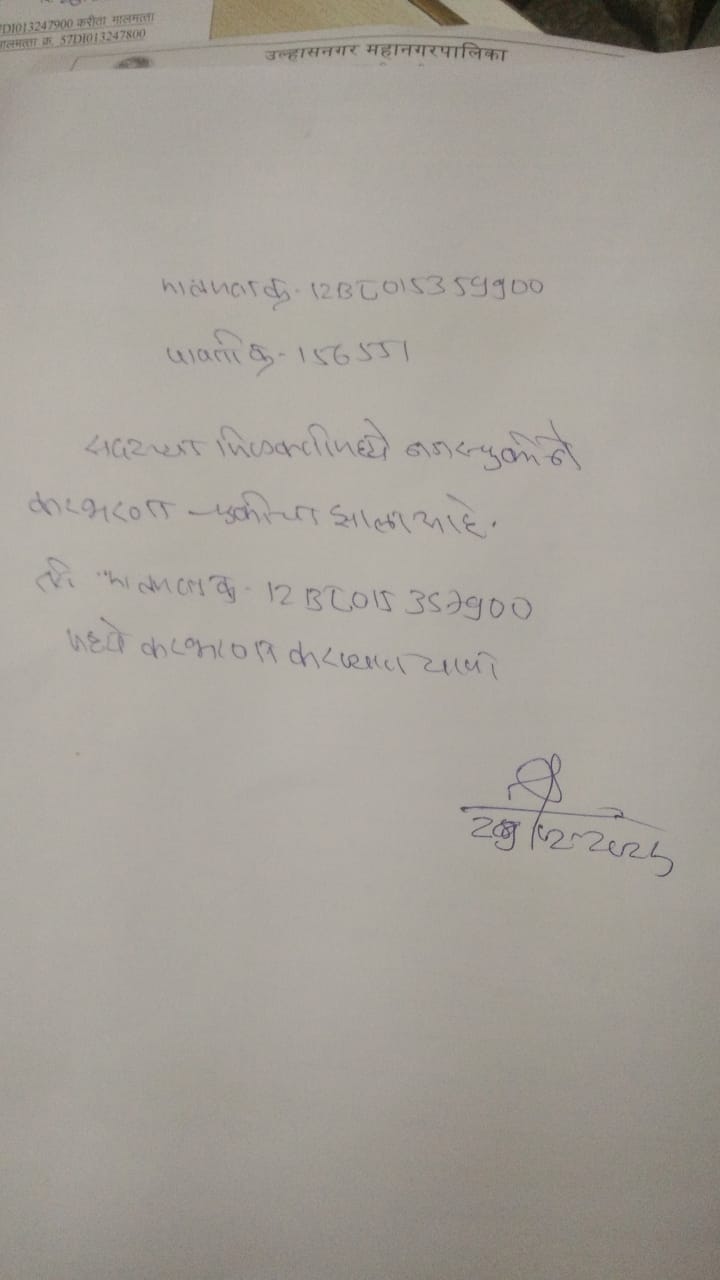 DI013247900 करीता मालमत्ता
मालमत्ता क्र. 57DI013247800
उल्हासनगर महानगरपालिका
मालमत्ता क्र. 12BC015359900
पावती क्र - 156551
सदरच्या मिळकतीमध्ये नजरचुकीने
करभरणा चुकीचा झाला आहे.
तरी मालमत्ता क्र. 12BC015357900
मध्ये करभरणा करण्यात यावा